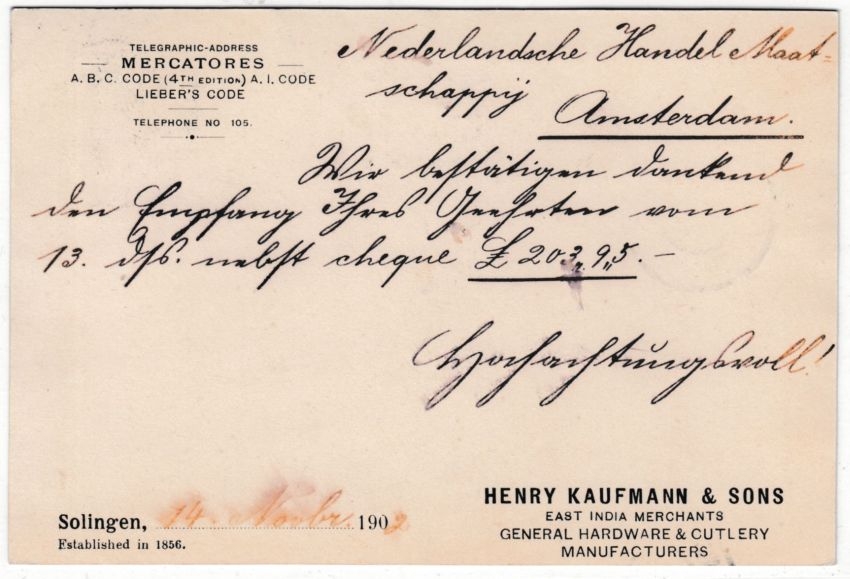 TELEGRAPHIC-ADDRESS
MERCATORES
A. B. C. CODE (4TH EDITION) A. I. CODE
LIEBER'S CODE
TELEPHONE NO 105.
Nederlandsche Handel Maat-
schappij
Amsterdam.
Wir bestätigen dankend
den Empfang Ihres Geehrten vom
13. dss. nebst cheque £ 203„9„5.–
Hochachtungsvoll!
Solingen, 14. Novbr. 1902
Established in 1856.
HENRY KAUFMANN & SONS
EAST INDIA MERCHANTS
GENERAL HARDWARE & CUTLERY
MANUFACTURERS